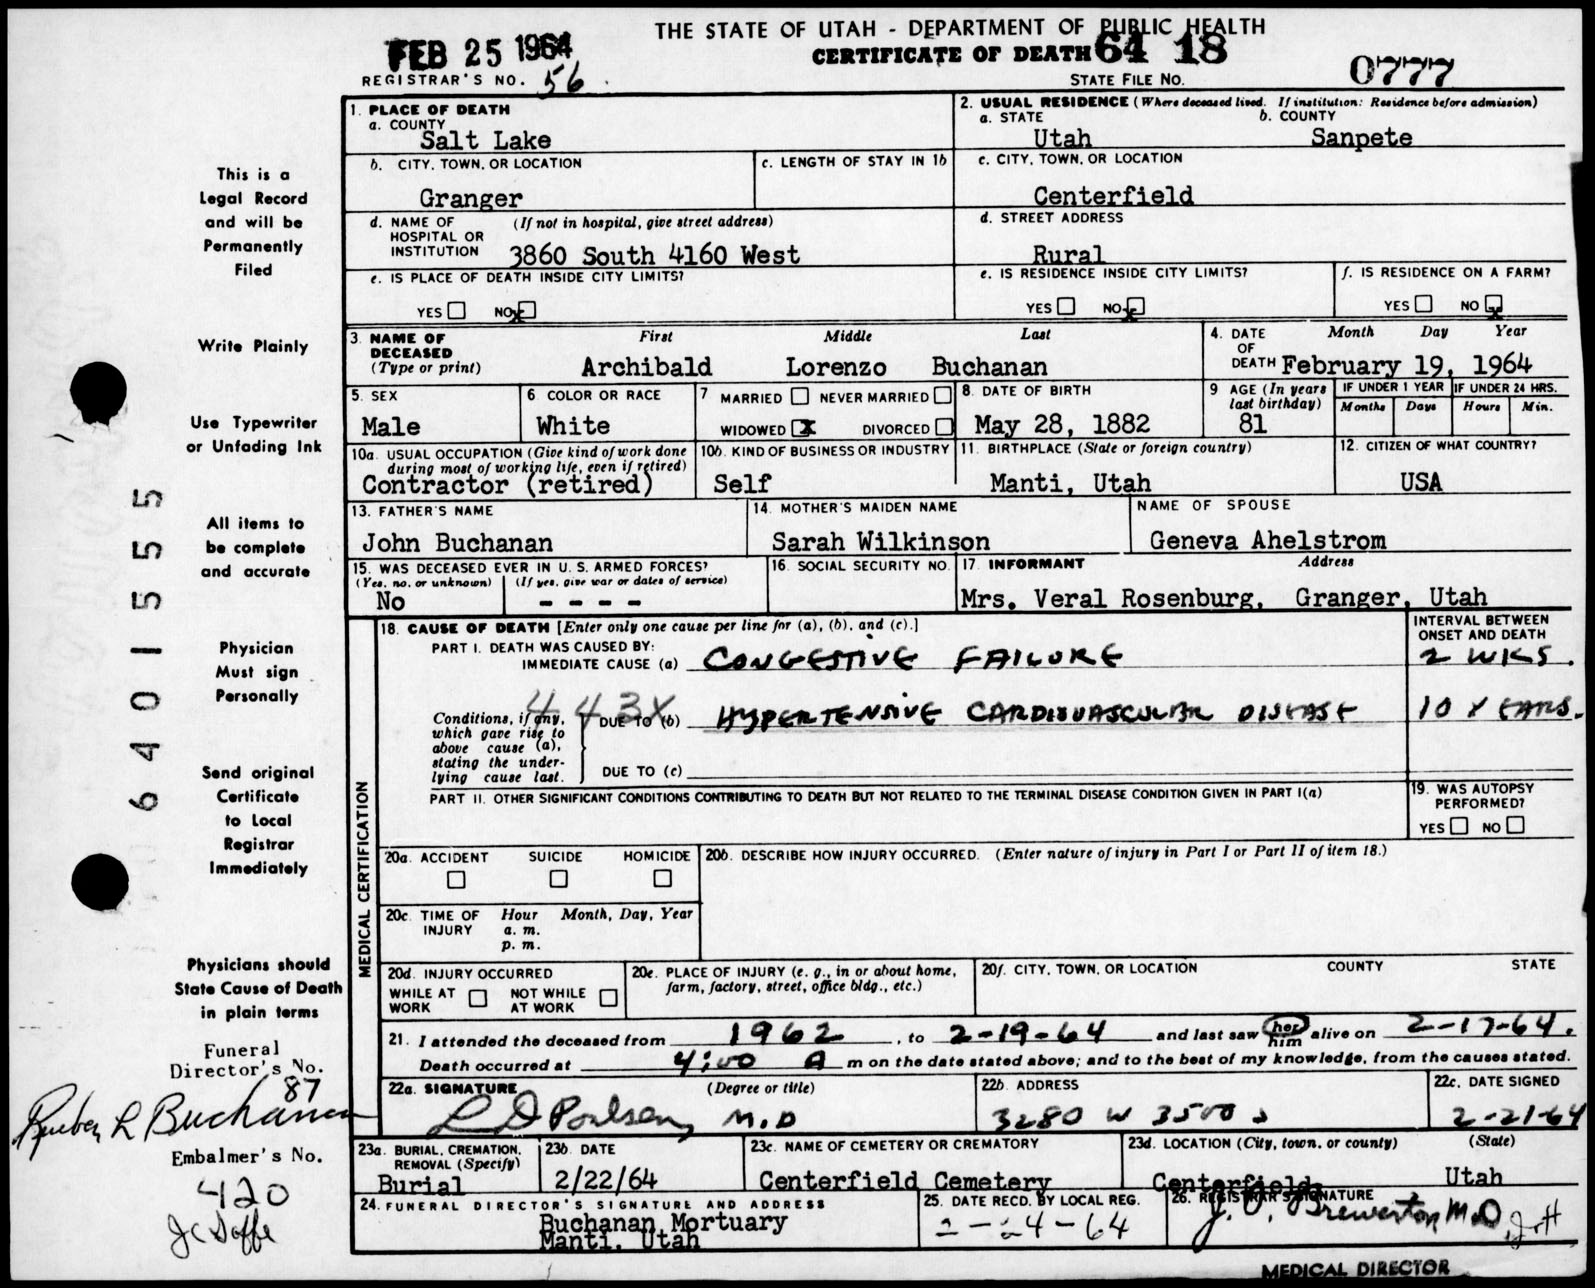 THE STATE OF UTAH - DEPARTMENT OF PUBLIC HEALTH
FEB 25 1964
CERTIFICATE OF DEATH 64 18 0777
REGISTRAR'S NO. 56
STATE FILE NO.
This is a
Legal Record
and will be
Permanently
Filed
Write Plainly
Use Typewriter
or Unfading Ink
All items to
be complete
and accurate
Physician
Must sign
Personally
Send original
Certificate
to Local
Registrar
Immediately
Physicians should
State Cause of Death
in plain terms
Funeral
Director's No.
87
Reuben L Buchanan
Embalmer's No.
420
640 1555
1. PLACE OF DEATH
a. COUNTY
Salt Lake
2. USUAL RESIDENCE (Where deceased lived. If institution: Residence before admission)
a. STATE b. COUNTY
Utah Sanpete
b. CITY, TOWN, OR LOCATION
Granger
c. LENGTH OF STAY IN 1b
c. CITY, TOWN, OR LOCATION
Centerfield
d. NAME OF (If not in hospital, give street address)
HOSPITAL OR
INSTITUTION 3860 South 4160 West
d. STREET ADDRESS
Rural
e. IS PLACE OF DEATH INSIDE CITY LIMITS?
YES NO x
e. IS RESIDENCE INSIDE CITY LIMITS?
YES NO x
f. IS RESIDENCE ON A FARM?
YES NO x
3. NAME OF First Middle Last
DECEASED
(Type or print) Archibald Lorenzo Buchanan
4. DATE Month Day Year
OF
DEATH February 19, 1964
5. SEX
Male
6. COLOR OR RACE
White
7 MARRIED NEVER MARRIED
WIDOWED x DIVORCED
8. DATE OF BIRTH
May 28, 1882
9 AGE (In years
last birthday)
81
IF UNDER 1 YEAR IF UNDER 24 HRS.
Months Days Hours Min.
10a. USUAL OCCUPATION (Give kind of work done
during most of working life, even if retired)
Contractor (retired)
10b. KIND OF BUSINESS OR INDUSTRY
Self
11. BIRTHPLACE (State or foreign country)
Manti, Utah
12. CITIZEN OF WHAT COUNTRY?
USA
13. FATHER'S NAME
John Buchanan
14. MOTHER'S MAIDEN NAME
Sarah Wilkinson
NAME OF SPOUSE
Geneva Ahelstrom
15. WAS DECEASED EVER IN U. S. ARMED FORCES?
(Yes, no, or unknown) (If yes, give war or dates of service)
No - - - -
16. SOCIAL SECURITY NO.
17. INFORMANT Address
Mrs. Veral Rosenburg, Granger, Utah
MEDICAL CERTIFICATION
18. CAUSE OF DEATH [Enter only one cause per line for (a), (b), and (c).]
INTERVAL BETWEEN
ONSET AND DEATH
PART I. DEATH WAS CAUSED BY:
IMMEDIATE CAUSE (a) CONGESTIVE FAILURE 2 WKS.
443X
Conditions, if any,
which gave rise to
above cause (a),
stating the under-
lying cause last.
DUE TO (b) HYPERTENSIVE CARDIOVASCULAR DISEASE 10 YEARS.
DUE TO (c)
PART II. OTHER SIGNIFICANT CONDITIONS CONTRIBUTING TO DEATH BUT NOT RELATED TO THE TERMINAL DISEASE CONDITION GIVEN IN PART I(a)
19. WAS AUTOPSY
PERFORMED?
YES NO
20a. ACCIDENT SUICIDE HOMICIDE
20b. DESCRIBE HOW INJURY OCCURRED. (Enter nature of injury in Part I or Part II of item 18.)
20c. TIME OF Hour Month, Day, Year
INJURY a. m.
p. m.
20d. INJURY OCCURRED
WHILE AT NOT WHILE
WORK AT WORK
20e. PLACE OF INJURY (e. g., in or about home,
farm, factory, street, office bldg., etc.)
20f. CITY, TOWN, OR LOCATION COUNTY STATE
21. I attended the deceased from 1962, to 2-19-64 and last saw her him alive on 2-17-64.
Death occurred at 4:00 A m on the date stated above; and to the best of my knowledge, from the causes stated.
22a. SIGNATURE (Degree or title)
L D Poulsen, M.D
22b. ADDRESS
3280 W 3500 S
22c. DATE SIGNED
2-21-64
23a. BURIAL, CREMATION,
REMOVAL (Specify)
Burial
23b. DATE
2/22/64
23c. NAME OF CEMETERY OR CREMATORY
Centerfield Cemetery
23d. LOCATION (City, town, or county) (State)
Centerfield Utah
24. FUNERAL DIRECTOR'S SIGNATURE AND ADDRESS
Buchanan Mortuary
Manti, Utah
25. DATE RECD. BY LOCAL REG.
2-24-64
26. REGISTRAR'S SIGNATURE
Brewerton M.D.
MEDICAL DIRECTOR